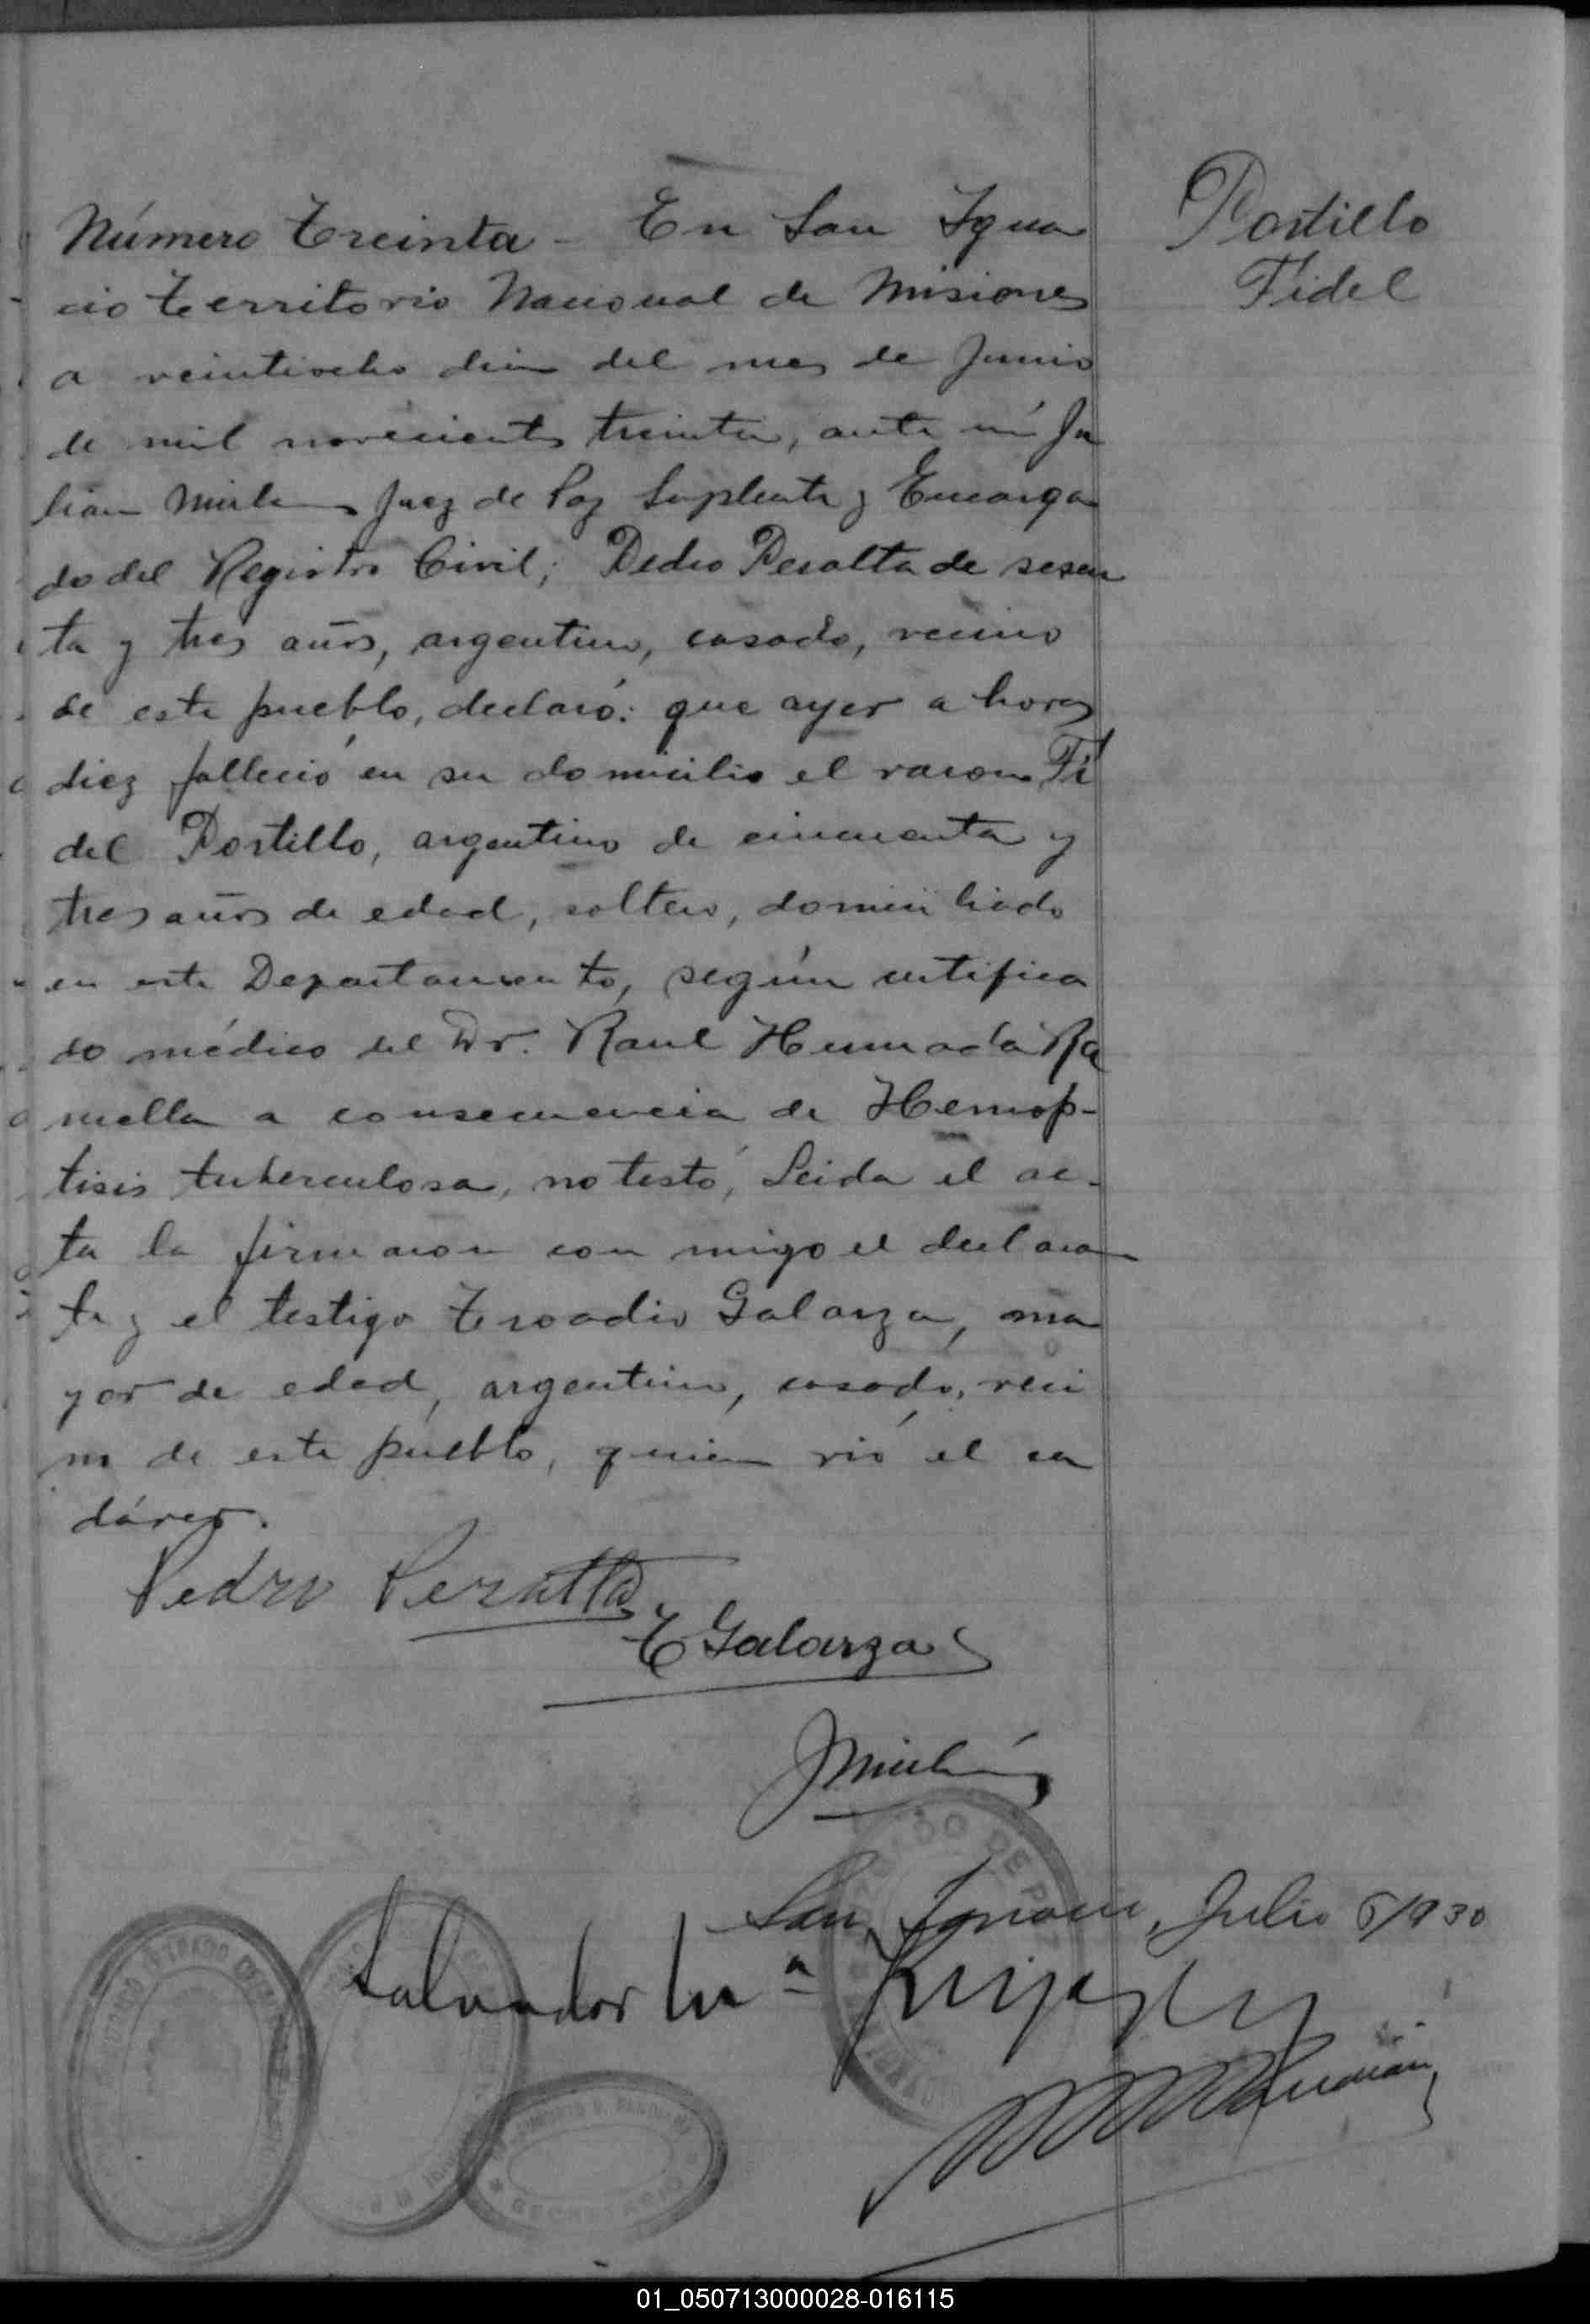 Número Treinta - En San Igna
cio Territorio Nacional de Misiones
a veintiocho dias del mes de Junio
de mil novecientos treinta, ante mí Ju
lian Juez de Paz Suplente y Encarga
do del Registro Civil; Pedro Peralta de sesen
ta y tres años, argentino, casado, vecino
de este pueblo, declaró: que ayer a horas
diez falleció en su domicilio el varon Fi
del Portillo, argentino de cincuenta y
tres años de edad, soltero, domiciliado
en este Departamento, según certifica
do médico del Dr. Raul Humada Ra
mella a consecuencia de Hemop-
tisis tuberculosa, no testó, Leida el ac-
ta la firmaron con migo el declaran
te y el testigo Troadio Galarza, ma
yor de edad, argentino, casado, veci
no de este pueblo, quien vió el ca
dáver.
Portillo
Fidel
Pedro Peralta
T Galarza
San Ignacio, Julio 5/930
Salvador Mª
JUZGADO DE PAZ
SECRETARIO
01_050713000028-016115